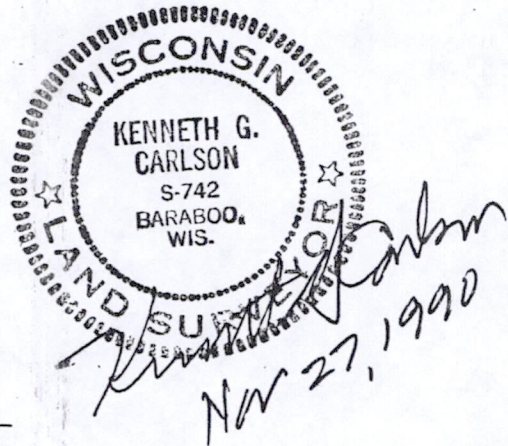 WISCONSIN
KENNETH G.
CARLSON
S-742
BARABOO,
WIS.
LAND SURVEYOR
Kenneth G Carlson
Nov 27, 1990